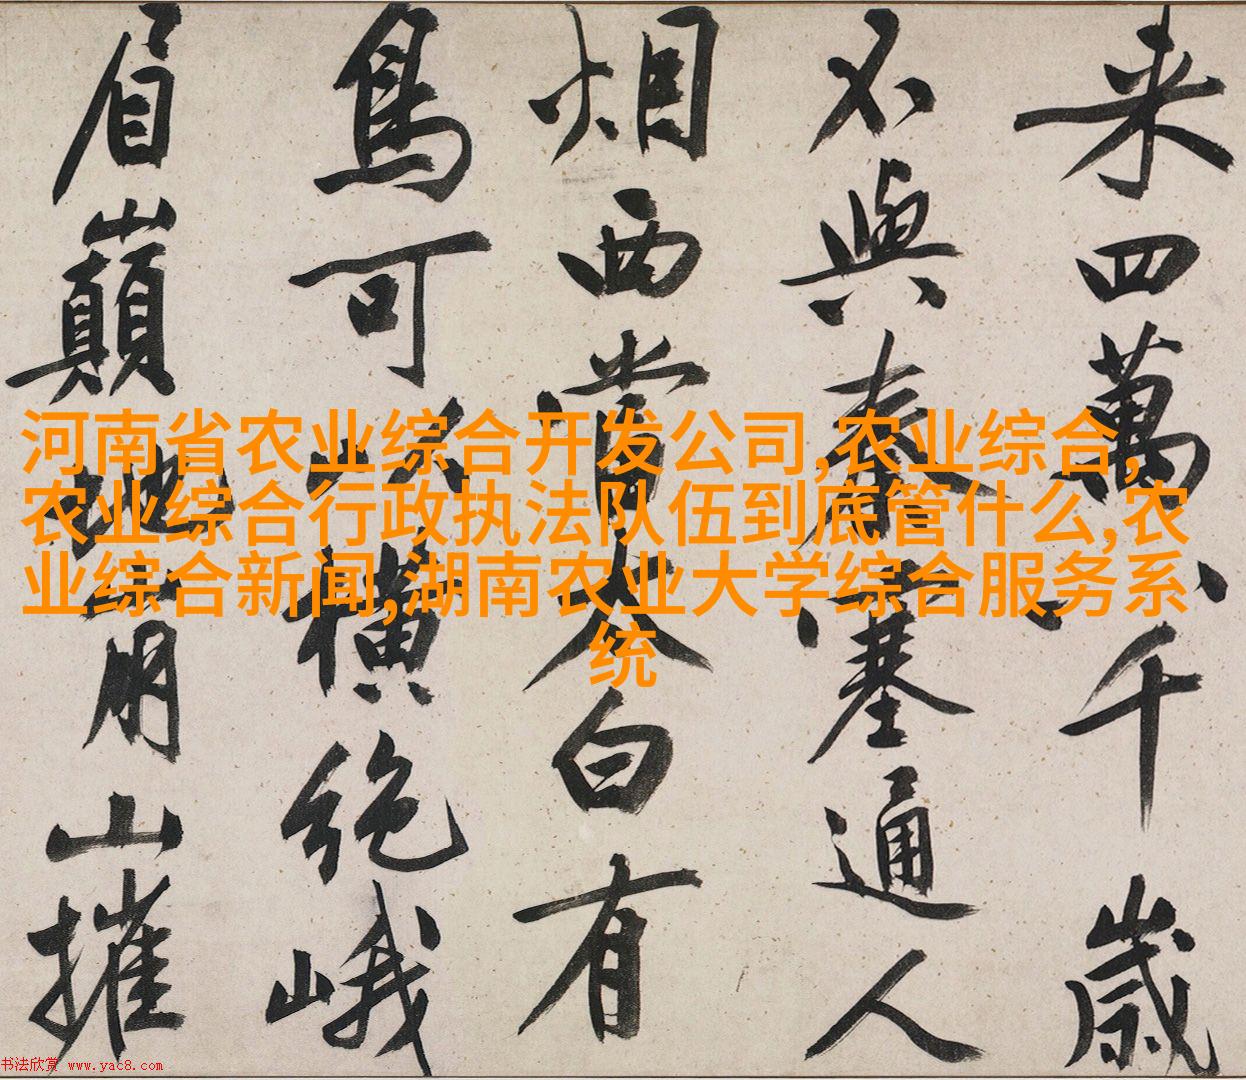 来四萬八千歲
不與秦塞通人
烟西當太白有
鳥可以橫絶峨
眉巔地崩山摧
河南省农业综合开发公司,农业综合,
农业综合行政执法队伍到底管什么,农
业综合新闻,湖南农业大学综合服务系
统
书法欣赏 www.yac8.com